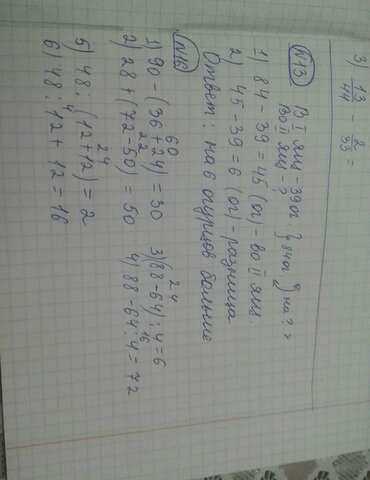 3) 13/44 - 2/33 =
N13 В I ящ - 39 ог } 84 ог } на ? >
Во II ящ - ?
1) 84 - 39 = 45 (ог) - во II ящ.
2) 45 - 39 = 6 (ог) - разница
Ответ: на 6 огурцов больше
N16
60
1) 90 - (36 + 24) = 30
22
2) 28 + (72 - 50) = 50
24
3) (88 - 64) : 4 = 6
16
4) 88 - 64 : 4 = 72
24
5) 48 : (12 + 12) = 2
4
6) 48 : 12 + 12 = 16